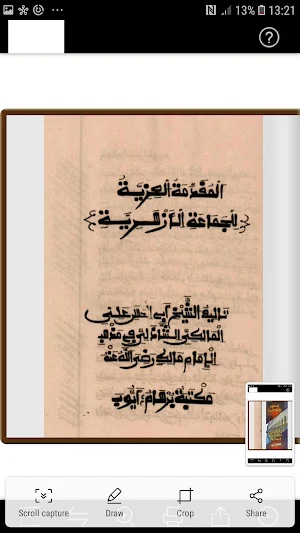 13% 13:21
المقدمة العزية
للجماعة الأزهرية
تأليف الشيخ أبي الحسن علي
المالكي الشاذلي في مذهب
الإمام مالك رضي الله عنه
مكتبة برهام أيوب
Scroll capture
Draw
Crop
Share